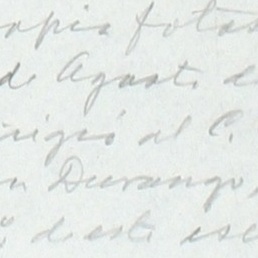 opia fotos
de Agosto d
irigió al C.
n Durango,
de este esc